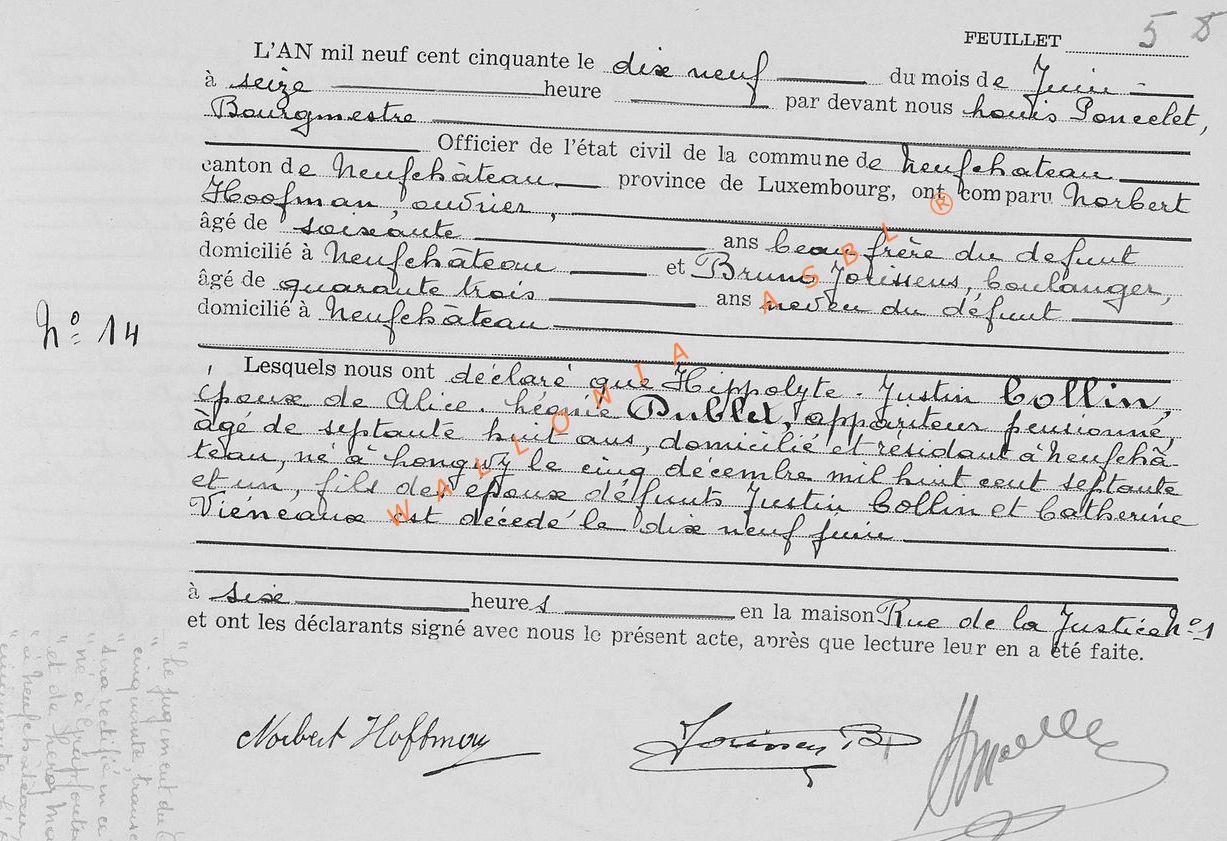 FEUILLET 58
L'AN mil neuf cent cinquante le dix neuf du mois de Juin
à seize heure par devant nous Louis Poncelet,
Bourgmestre
Officier de l'état civil de la commune de Neufchateau
canton de Neufchâteau province de Luxembourg, ont comparu Norbert
Hoofman, ouvrier,
âgé de soixante ans beau frère du defunt
domicilié à Neufchâteau et Bruno Jorissens, boulanger,
âgé de quarante trois ans neveu du défunt
domicilié à Neufchâteau
N° 14
Lesquels nous ont déclaré que Hippolyte Justin Collin,
époux de Alice Léonie Dublet, appariteur pensionné,
âgé de septante huit ans, domicilié et résidant à Neufchâ-
teau, né à Longwy le cinq décembre mil huit cent septante
et un, fils des époux défunts Justin Collin et Catherine
Viéneaux est décédé le dix neuf juin
à six heures en la maison Rue de la Justice N° 1
et ont les déclarants signé avec nous le présent acte, après que lecture leur en a été faite.
Norbert Hoffman
WALLONIA ASBL ®
"Le jugement du
"cinquante, trans
"sera rectifié en ce
"né à
"et de
"à Neufchâteau,